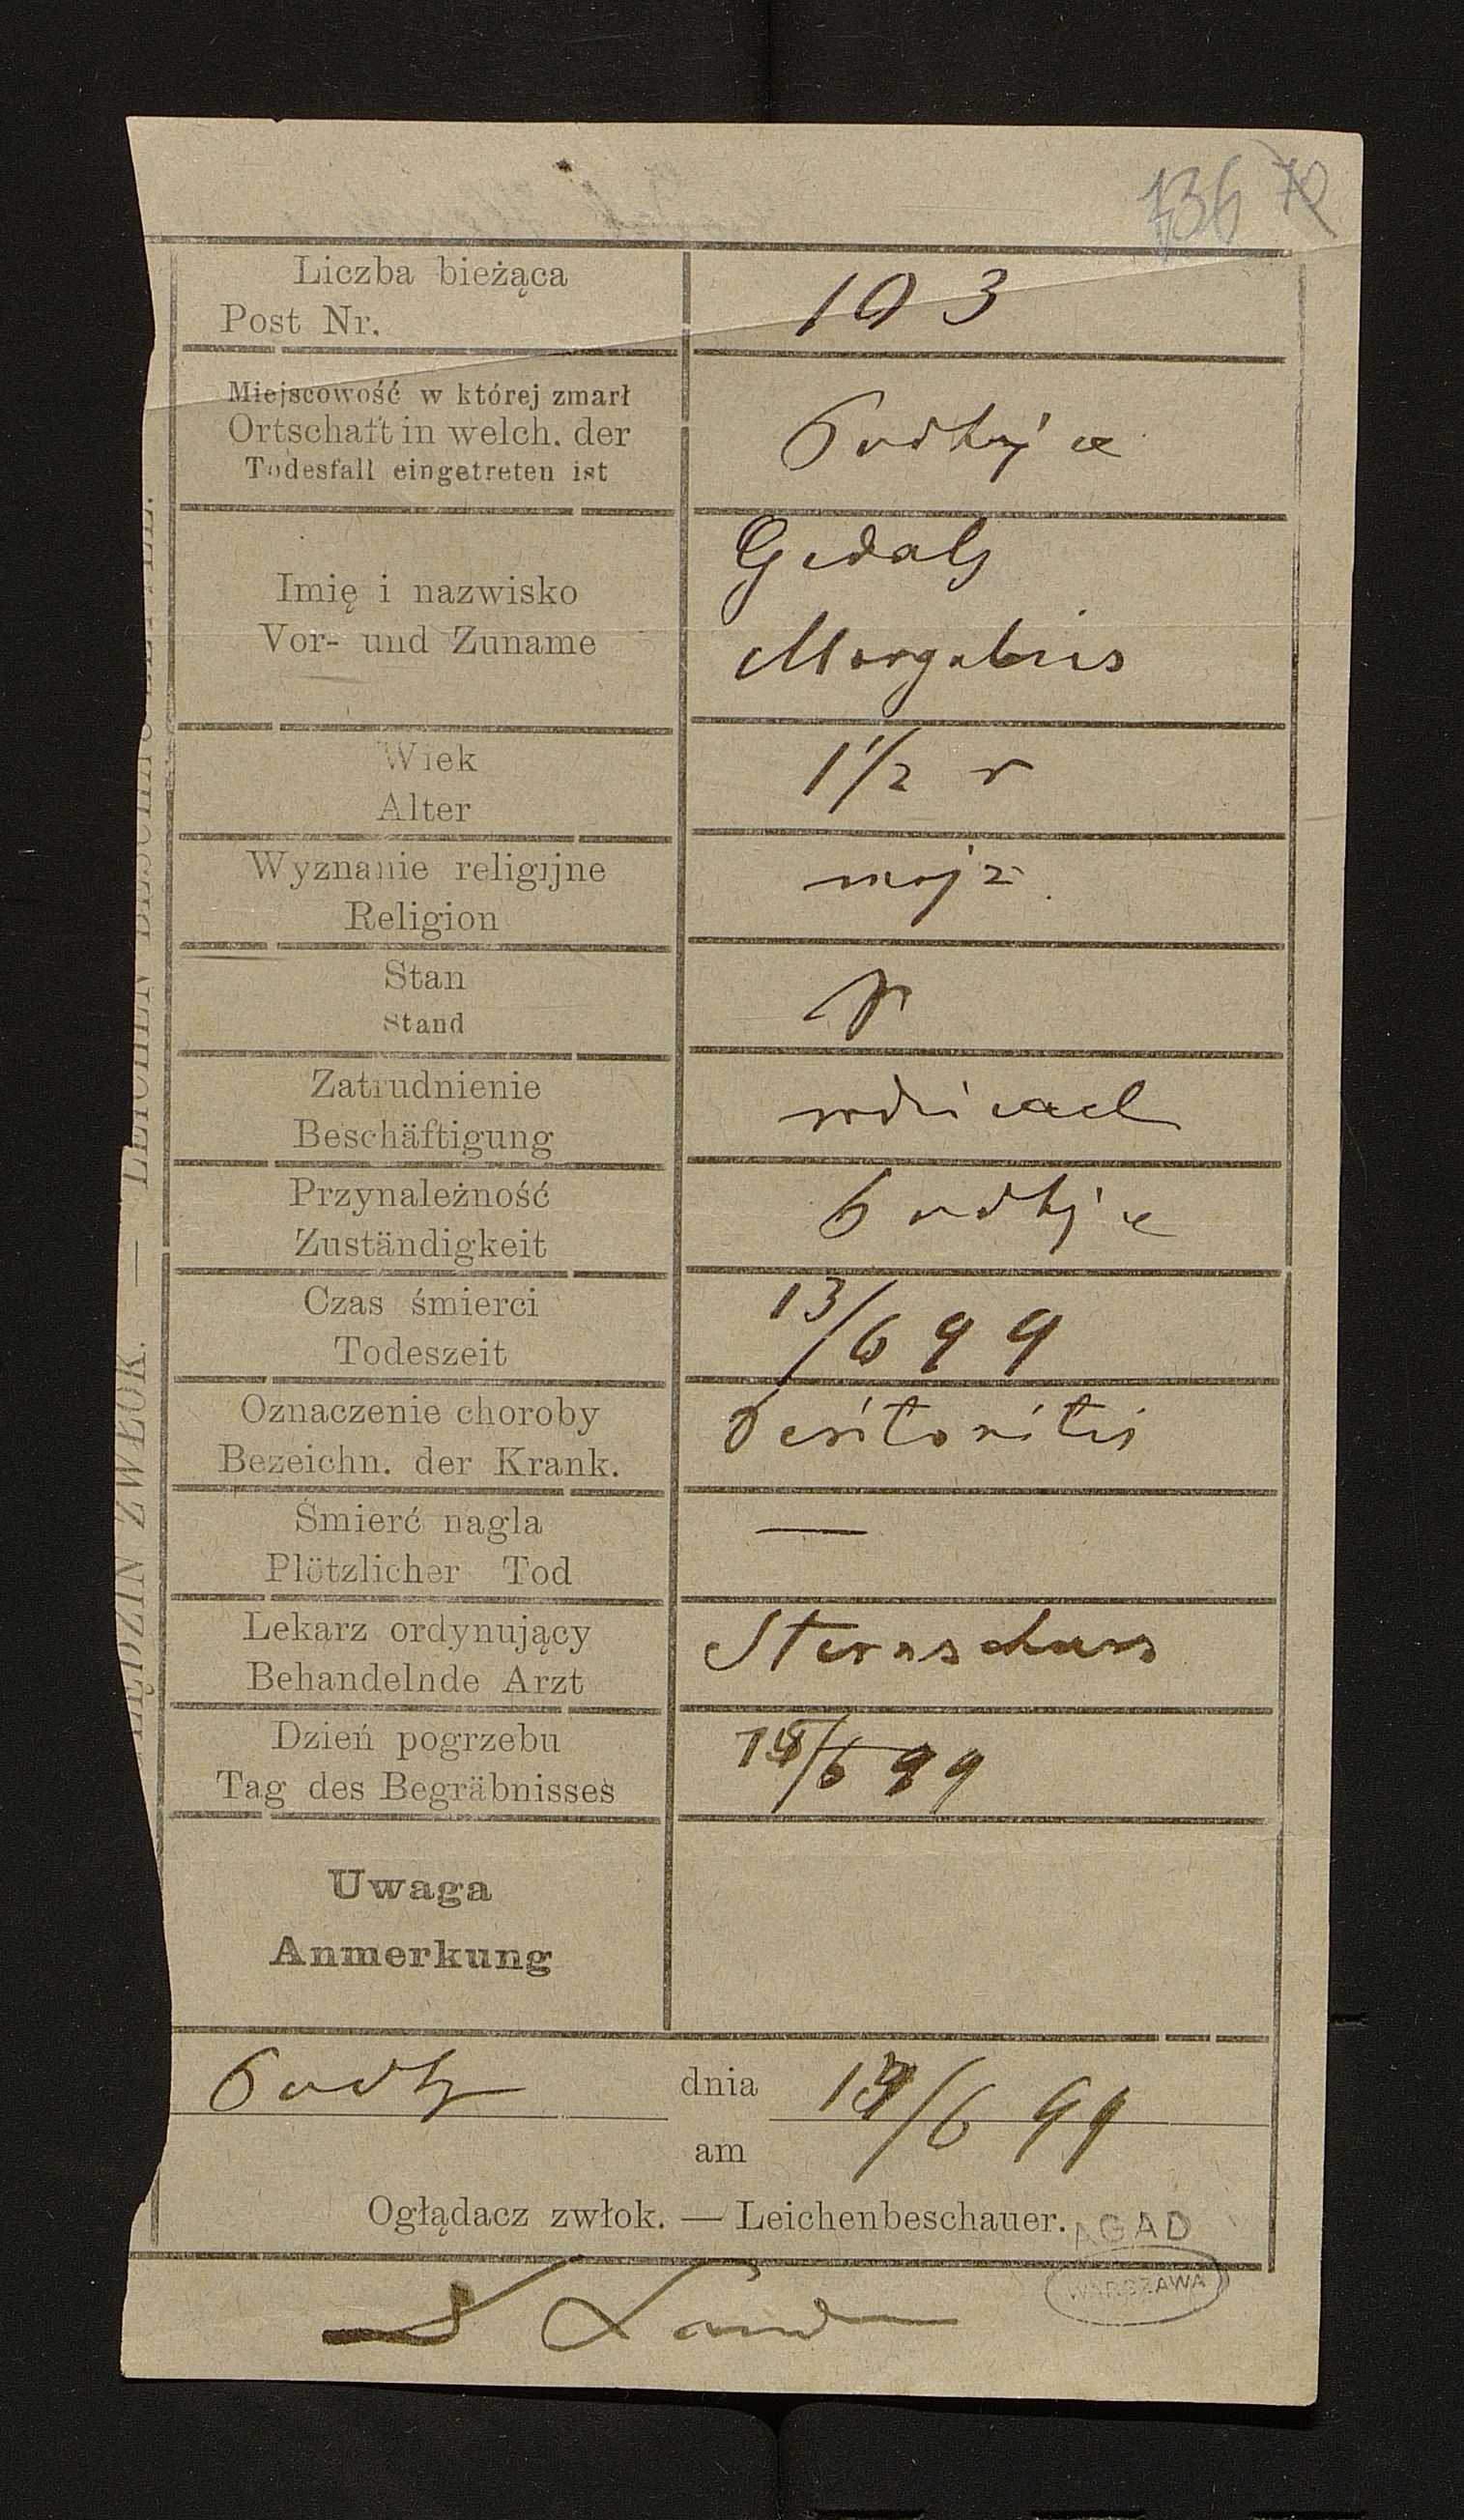 136 70
Liczba bieżąca
Post Nr.
103
Miejscowość w której zmarł
Ortschaft in welch. der
Todesfall eingetreten ist
Podhajce
Imię i nazwisko
Vor- und Zuname
Gedalj
Margulies
Wiek
Alter
1 1/2 r
Wyznanie religijne
Religion
mojż.
Stan
Stand
Zatrudnienie
Beschäftigung
Przynależność
Zuständigkeit
Podhajce
Czas śmierci
Todeszeit
13/6 99
Oznaczenie choroby
Bezeichn. der Krank.
Peritonitis
Śmierć nagla
Plötzlicher Tod
—
Lekarz ordynujący
Behandelnde Arzt
Sternschuss
Dzień pogrzebu
Tag des Begräbnisses
/6 99
Uwaga
Anmerkung
Podh dnia /6 99
am
Oglądacz zwłok. — Leichenbeschauer.
AGAD
WARSZAWA
OGLĘDZIN ZWŁOK. — LEICHEN BESCHAU